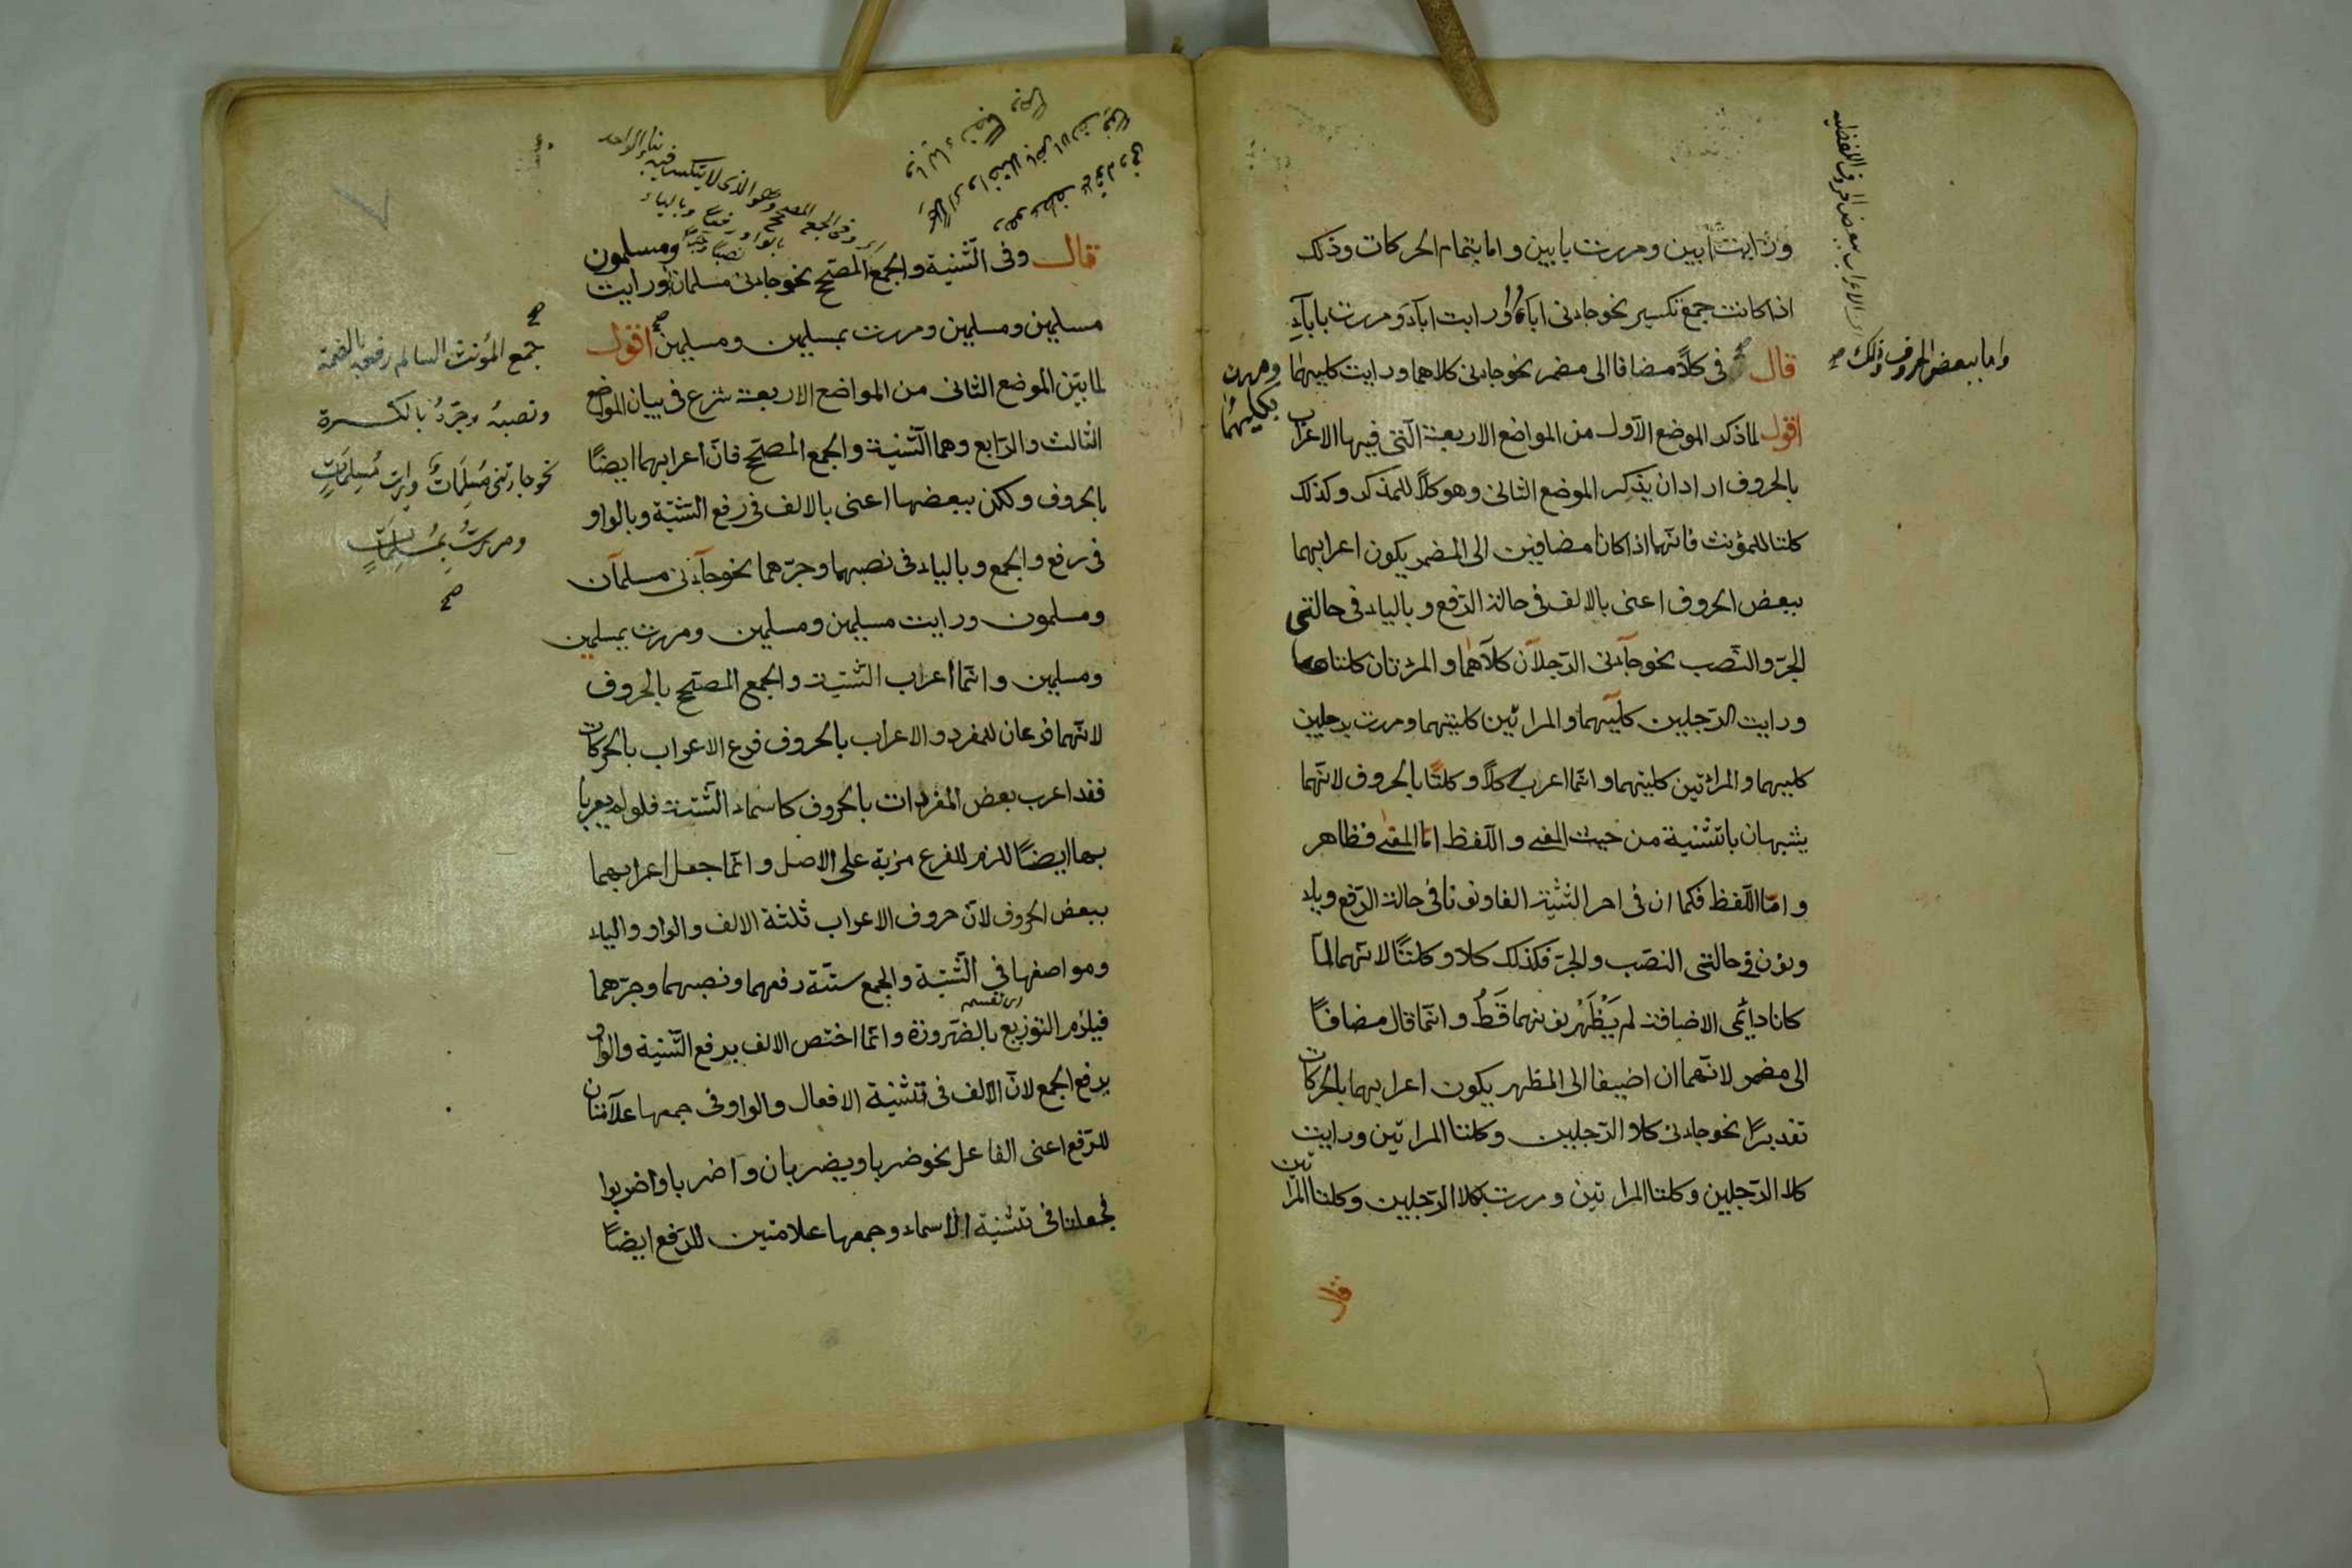 ورايت ابين ومررت بابين واما بتمام الحركات وذلك
اذا كانت جمع تكسير نحو جاءنى اباء ورايت اباء ومررت باباء
واما ببعض الحروف وذلك صح
قال فى كلا مضافا الى مضمر نحو جاءنى كلاهما ورايت كليهما ومررت
بكليهما
اقول لما ذكر الموضع الاول من المواضع الاربعة التى فيها الاعراب
بالحروف اراد ان يذكر الموضع الثانى وهو كلا للمذكر وكذلك
كلتا للمؤنث فانهما اذا كانا مضافين الى المضمر يكون اعرابهما
ببعض الحروف اعنى بالالف فى حالة الرفع وبالياء فى حالتى
الجر والنصب نحو جاءنى الرجلان كلاهما والمرئتان كلتاهما
ورايت الرجلين كليهما والمراتين كلتيهما ومررت برجلين
كليهما والمراتين كلتيهما وانما اعرب كلا وكلتا بالحروف لانهما
يشبهان بالتثنية من حيث المعنى واللفظ اما المعنى فظاهر
واما اللفظ فكما ان فى اخر التثنية الفا ونونا فى حالة الرفع وياء
ونون فى حالتى النصب والجر فكذلك كلا وكلتا لانهما لما
كانا دائمى الاضافة لم يظهر نونهما قط وانما قال مضافا
الى مضمر لانهما ان اضيفا الى المظهر يكون اعرابهما بالحركات
تقديرا نحو جاءنى كلا الرجلين وكلتا المراتين ورايت
كلا الرجلين وكلتا المراتين ومررت بكلا الرجلين وكلتا المراتين
قال
قال وفى التثنية والجمع المصحح نحو جاءنى مسلمان ومسلمون ورايت
مسلمين ومسلمين ومررت بمسلمين ومسلمين اقول
لما بين الموضع الثانى من المواضع الاربعة شرع فى بيان الموضع
الثالث والرابع وهما التثنية والجمع المصحح فان اعرابهما ايضا
بالحروف ولكن ببعضها اعنى بالالف فى رفع التثنية وبالواو
فى رفع والجمع وبالياء فى نصبهما وجرهما نحو جاءنى مسلمان
ومسلمون ورايت مسلمين ومسلمين ومررت بمسلمين
ومسلمين وانما اعراب التثنية والجمع المصحح بالحروف
لانهما فرعان للمفرد والاعراب بالحروف فرع الاعراب بالحركات
فقد اعرب بعض المفردات بالحروف كاسماء الستة فلو لم يعربا
بها ايضا للزم للفرع مزية على الاصل وانما جعل اعرابهما
ببعض الحروف لان حروف الاعراب ثلثة الالف والواو والياء
ومواضعها فى التثنية والجمع ستة رفعهما ونصبهما وجرهما
فيلزم التوزيع بالضرورة وانما اختص الالف برفع التثنية والواو
برفع الجمع لان الالف فى تثنية الافعال والواو فى جمعها علامتان
للرفع اعنى الفاعل نحو ضربا ويضربان واضربا واضربوا
فجعلتا فى تثنية الاسماء وجمعها علامتين للرفع ايضا
جمع المؤنث السالم رفعه بالضمة
ونصبه وجره بالكسرة
نحو جاءتنى مسلمات ورايت مسلمات
ومررت بمسلمات
صح